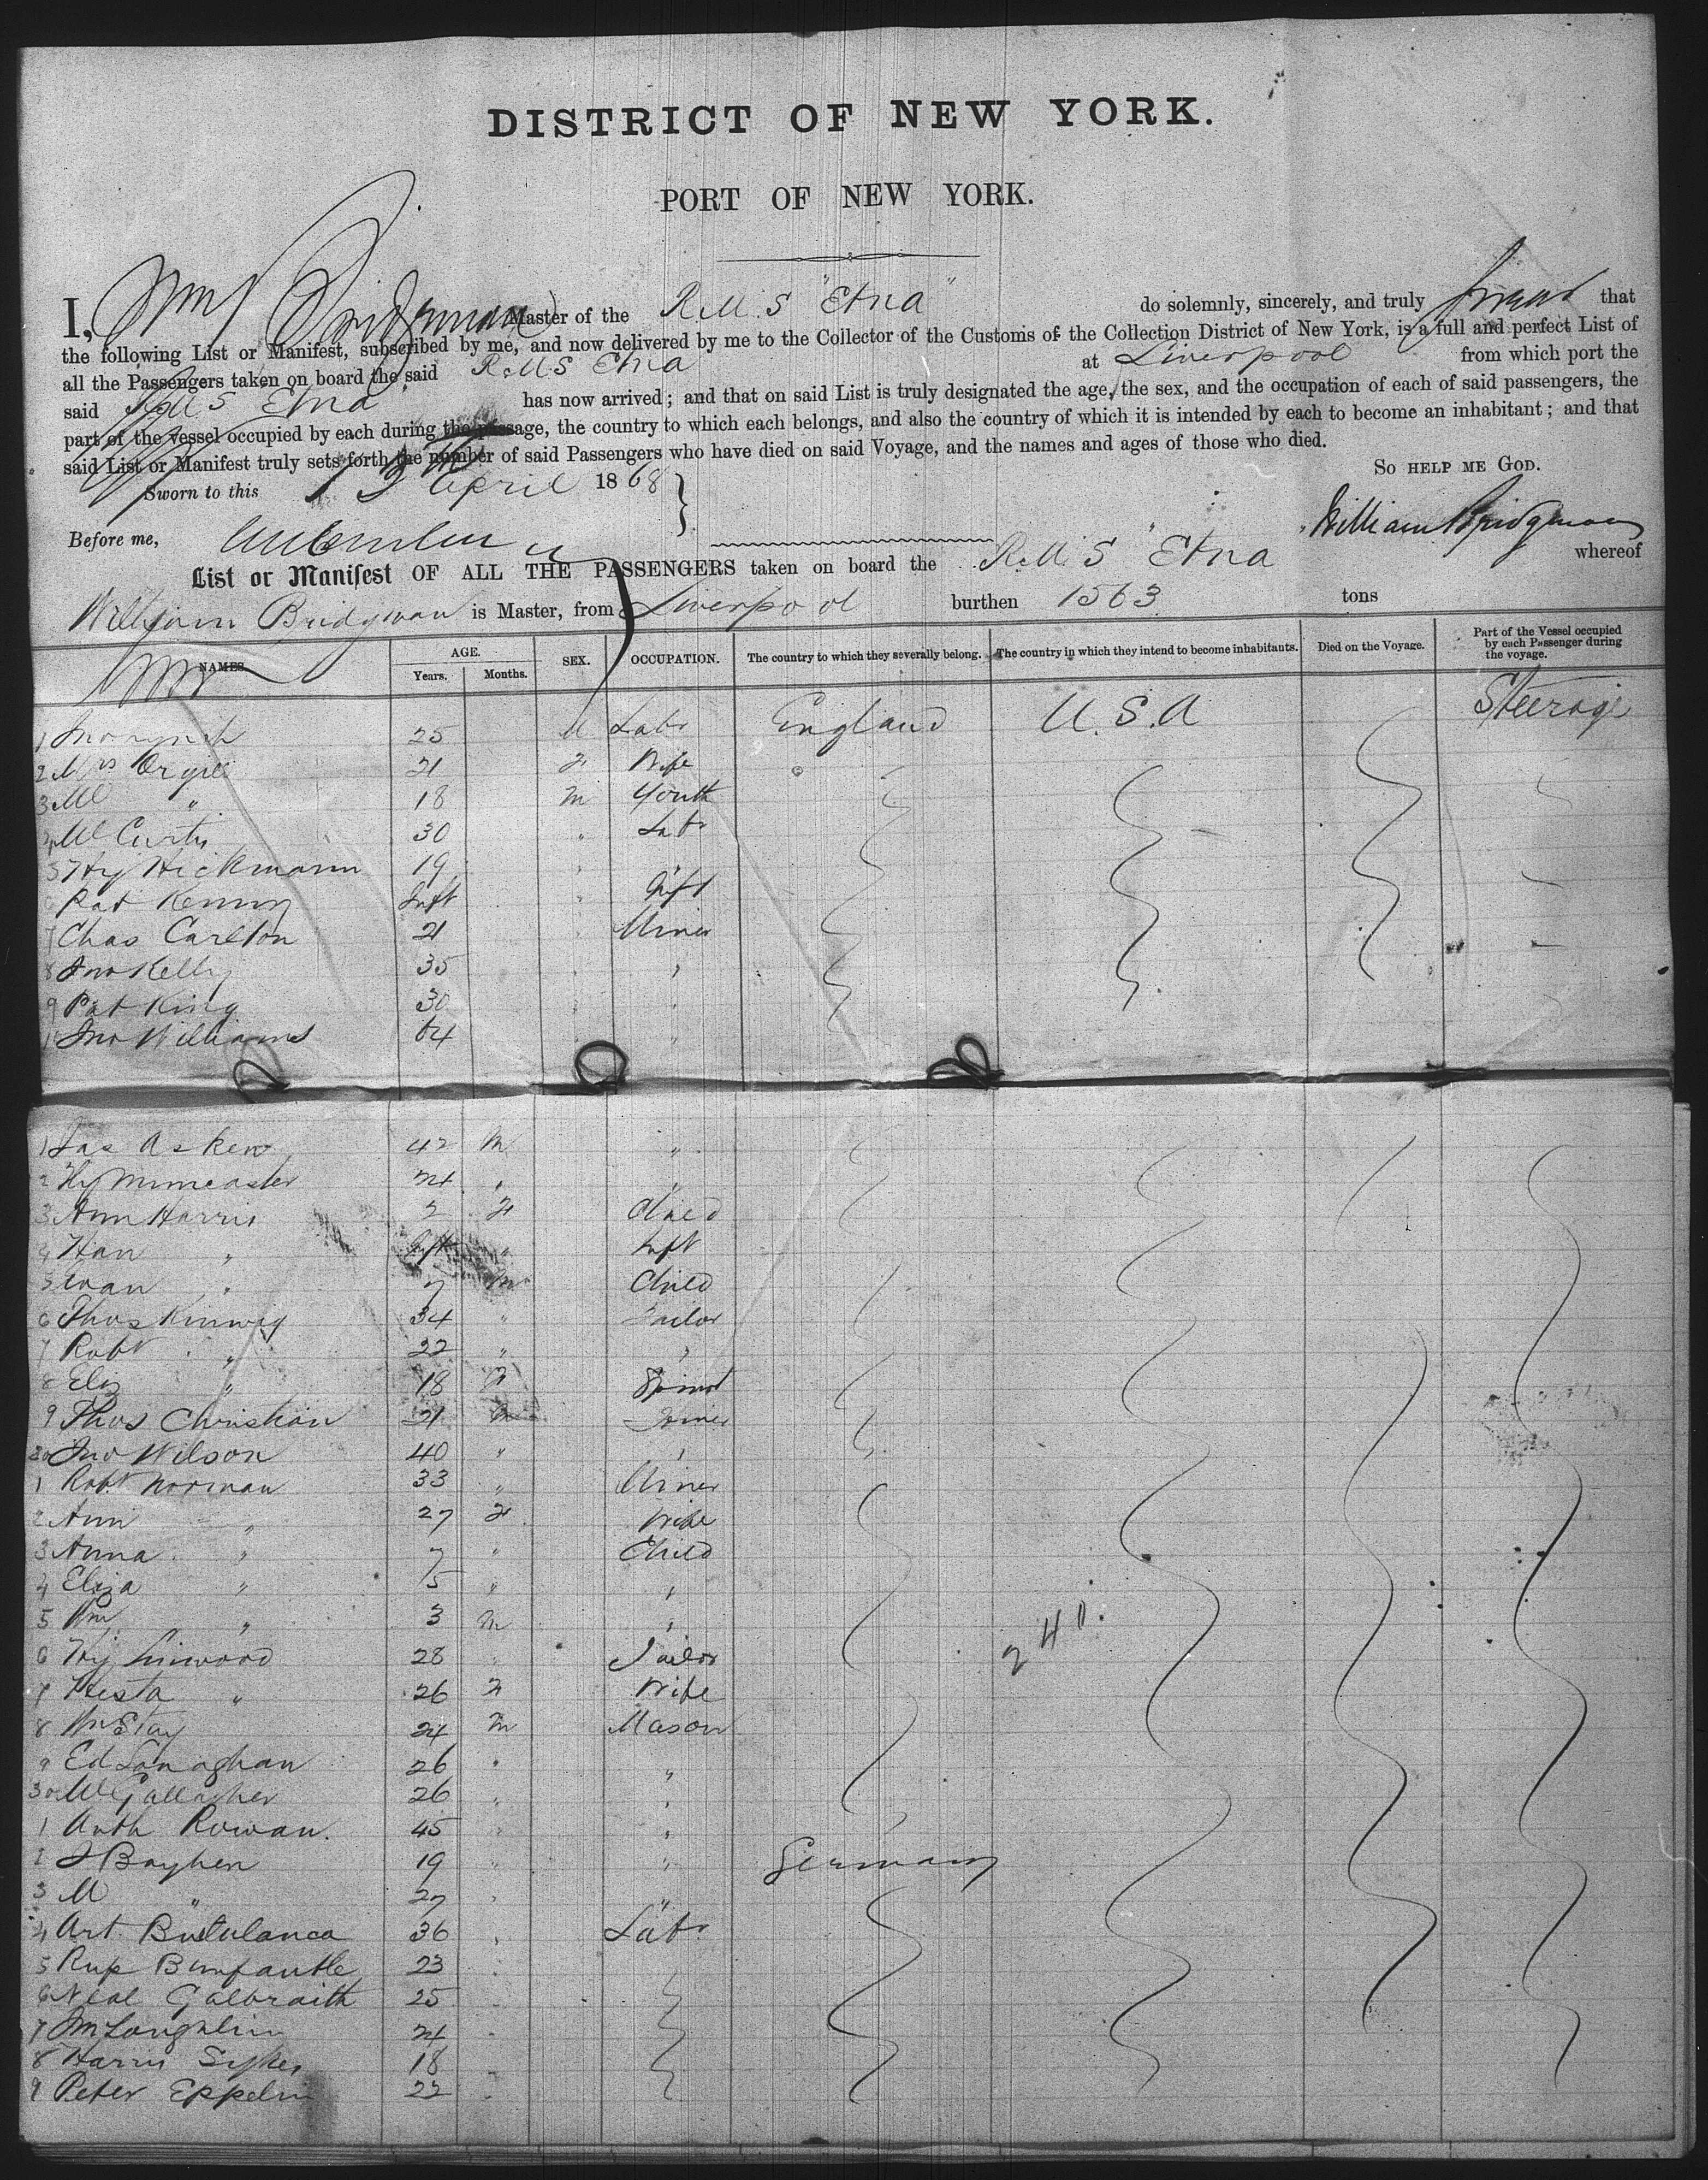 DISTRICT OF NEW YORK.
PORT OF NEW YORK.
I, Wm Bridgman Master of the R.M.S "Etna" do solemnly, sincerely, and truly swear that
the following List or Manifest, subscribed by me, and now delivered by me to the Collector of the Customs of the Collection District of New York, is a full and perfect List of
all the Passengers taken on board the said R.M.S Etna at Liverpool from which port the
said RMS Etna has now arrived; and that on said List is truly designated the age, the sex, and the occupation of each of said passengers, the
part of the vessel occupied by each during the passage, the country to which each belongs, and also the country of which it is intended by each to become an inhabitant; and that
said List or Manifest truly sets forth the number of said Passengers who have died on said Voyage, and the names and ages of those who died.
So HELP ME GOD.
Sworn to this 13 April 1868
William Bridgman
Before me,
List or Manifest OF ALL THE PASSENGERS taken on board the R.M.S Etna whereof
William Bridgman is Master, from Liverpool burthen 1563 tons
NAMES. AGE. Years. Months. SEX. OCCUPATION. The country to which they severally belong. The country in which they intend to become inhabitants. Died on the Voyage. Part of the Vessel occupied by each Passenger during the voyage.
1 Jno 25 M Labr England U.S.A Steerage
2 Mrs 21 F Wife
3 " 18 m Youth
4 Curtis 30 " Labr
5 Hy Hickmann 19 " "
6 Pat Kenny Inft " Inft
7 Chas Carlton 21 " Miner
8 Jno Kelly 35 " "
9 Pat King 30 " "
Jno Williams 64 " "
1 Jas Asken 42 M "
2 Hy Muncaster 24 " "
3 Ann Harris 2 F Child
4 Han " Inft " Inft
5 Evan " 7 m Child
6 Thos Kinwig 34 " Tailor
7 Robt " 22 " "
8 Eliz " 18 F Spinst
9 Thos Christian 21 m Joiner
20 Jno Wilson 40 " "
1 Robt Norman 33 " Miner
2 Ann " 27 F Wife
3 Anna " 7 " Child
4 Eliza " 5 " "
5 Wm " 3 m "
6 Hy Linwood 28 " Tailor
7 Hesta " 26 F Wife
8 Wm Stay 24 m Mason
9 Ed Lanaghan 26 " "
30 Gallagher 26 " "
1 Anth Rowan. 45 " "
2 J Boyhen 19 " " Germany
3 M " 27 " "
4 Art. 36 " Labr
5 23 "
6 Neal Galbraith 25 "
7 Loughlin 24 "
8 Harris Sykes 18
9 Peter Eppelin 22 "
240.